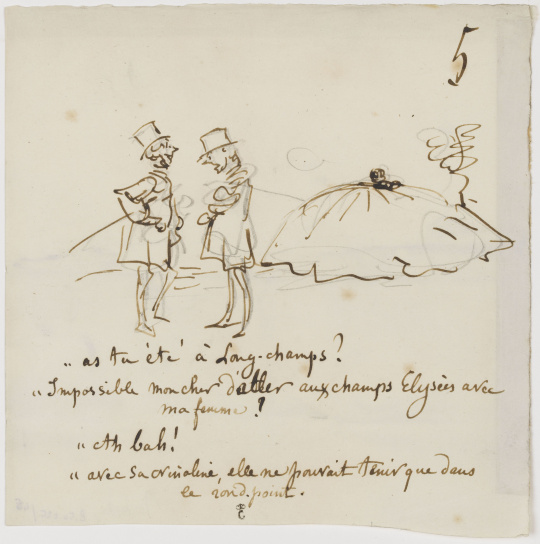 5
„ as tu été à Long-champs ?
„ Impossible mon cher d'aller aux champs Elysées avec
ma femme !
„ Ah bah !
„ avec sa crinoline, elle ne pouvait tenir que dans
le rond-point.